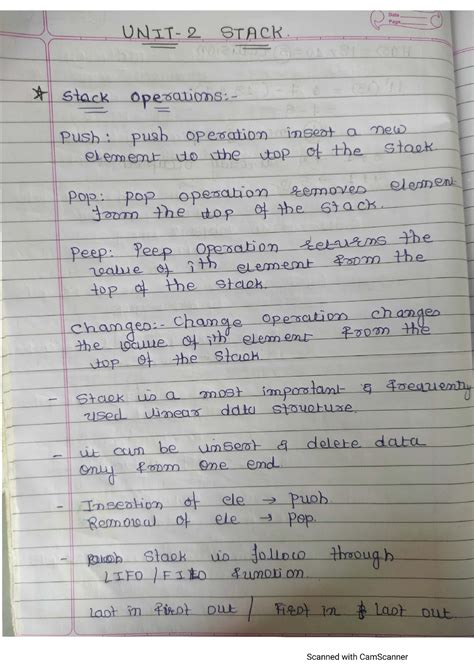 Date
Page
UNIT-2 STACK
* Stack operations:-
Push: push operation insert a new
element to the top of the stack.
Pop: pop operation removes element
from the top of the stack.
Peep: Peep Operation returns the
value of ith element from the
top of the stack.
Changes:- Change operation changes
the value of ith element from the
top of the stack
- Stack is a most important & frequently
used linear data structure.
- it can be insert & delete data
only from one end.
- Insertion of ele → push
Removal of ele → Pop.
- Stack is follow through
LIFO / FILO function.
Last in first out / First in Last out.
Scanned with CamScanner